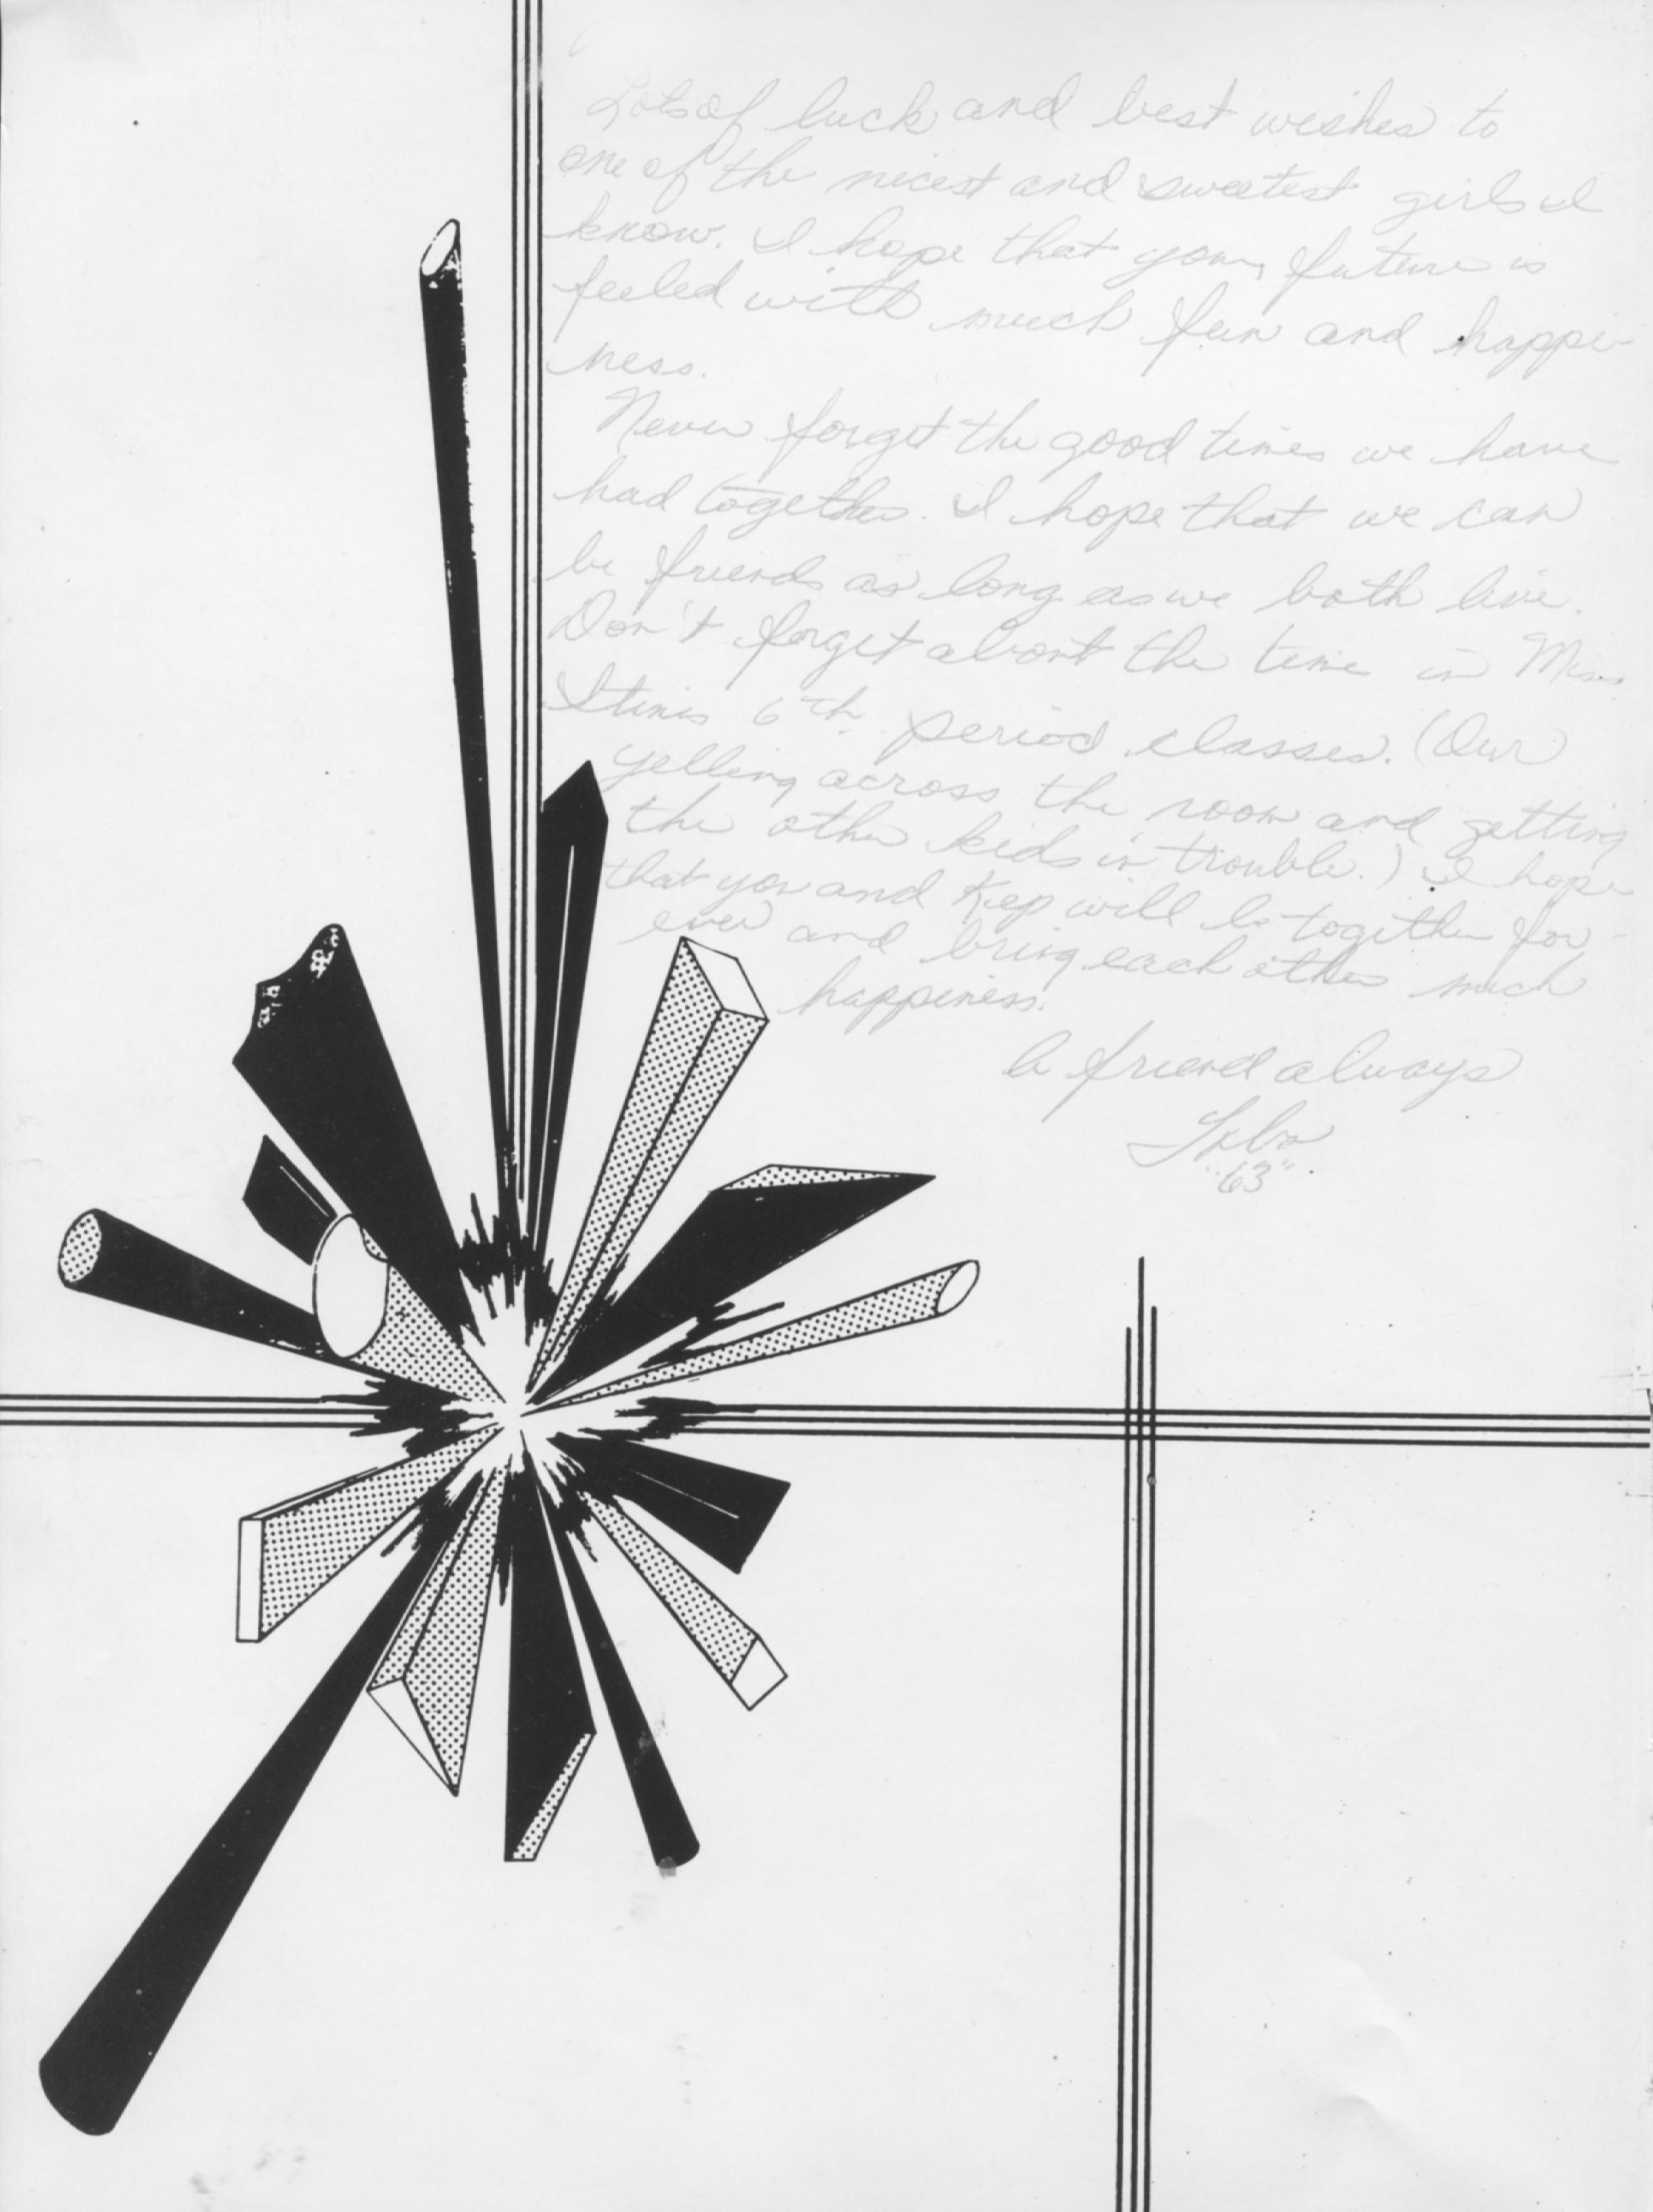 Lots of luck and best wishes to
one of the nicest and sweetest girls I
know. I hope that your future is
feeled with much fun and happi-
ness.
Never forget the good times we have
had together. I hope that we can
be friends as long as we both live.
Don't forget about the time in Miss
6th period classes. (Our
yelling across the room and getting
the other kids in trouble.) I hope
that you and will be together for-
ever and bring each other much
happiness.
A friend always
"63"